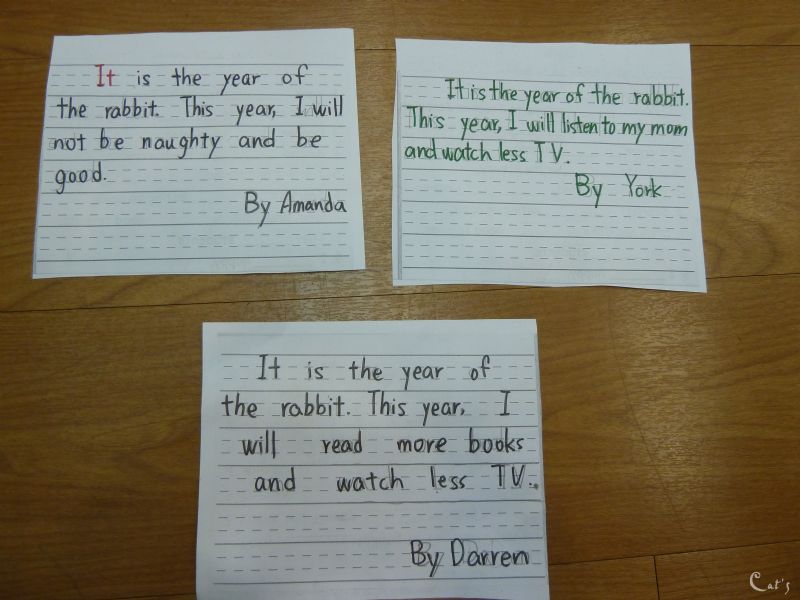 It is the year of
the rabbit. This year, I will
not be naughty and be
good.
By Amanda
It is the year of the rabbit.
This year, I will listen to my mom
and watch less TV.
By York
It is the year of
the rabbit. This year, I
will read more books
and watch less TV.
By Darren
Cat's